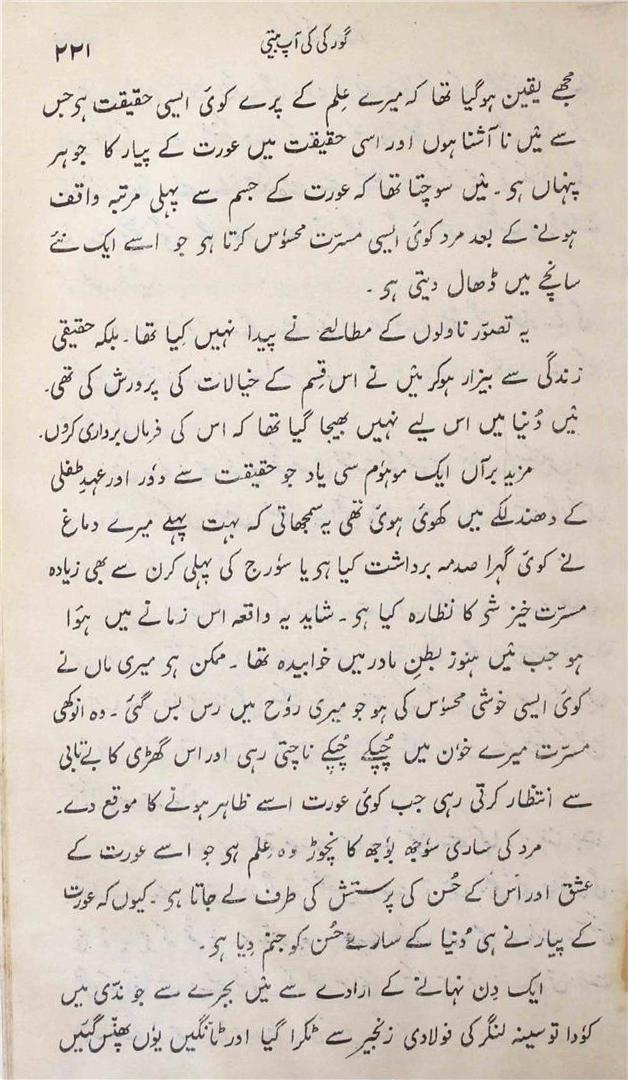 گورکی کی آپ بیتی
۲۲۱
مجھے یقین ہوگیا تھا کہ میرے عِلم کے پرے کوئ ایسی حقیقت ہو جس
سے مَیں نا آشنا ہوں اور اسی حقیقت میں عورت کے پیار کا جوہر
پنہاں ہو۔ مَیں سوچتا تھا کہ عورت کے جسم سے پہلی مرتبہ واقف
ہونے کے بعد مرد کوئ ایسی مسرّت محسوٗس کرتا ہو جو اسے ایک نئے
سانچے میں ڈھال دیتی ہو۔
یہ تصوّر ناولوں کے مطالعے نے پیدا نہیں کیا تھا۔ بلکہ حقیقی
زندگی سے بیزار ہوکر مَیں نے اس قِسم کے خیالات کی پرورش کی تھی۔
مَیں دُنیا میں اس لیے نہیں بھیجا گیا تھا کہ اس کی فرماں برداری کروں۔
مزید برآں ایک موہوٗم سی یاد جو حقیقت سے دوٗر اور عہدِ طفلی
کے دھندلکے میں کھوئ ہوئ تھی یہ سمجھاتی کہ بہت پہلے میرے دماغ
نے کوئ گہرا صدمہ برداشت کیا ہو یا سوٗرج کی پہلی کرن سے بھی زیادہ
مسرّت خیز شو کا نظارہ کیا ہو۔ شاید یہ واقعہ اس زمانے میں ہوٗا
ہو جب مَیں ہنوز بطنِ مادر میں خوابیدہ تھا۔ ممکن ہو میری ماں نے
کوئ ایسی خوشی محسوٗس کی ہو جو میری روٗح میں رس بس گئی۔ وہ انوکھی
مسرّت میرے خوٗن میں چُپکے چُپکے ناچتی رہی اور اس گھڑی کا بےتابی
سے انتظار کرتی رہی جب کوئ عورت اسے ظاہر ہونے کا موقع دے۔
مرد کی ساری سوٗجھ بوٗجھ کا نچوڑ وہ عِلم ہو جو اسے عورت کے
عشق اور اس کے حُسن کی پرستش کی طرف لے جاتا ہو۔ کیوں کہ عورت
کے پیار نے ہی دُنیا کے سارے حُسن کو جنم دِیا ہو۔
ایک دِن نہانے کے ارادے سے مَیں بجرے سے جو ندّی میں
کوٗدا تو سینہ لنگر کی فولادی زنجیر سے ٹکرا گیا اور ٹانگیں یوٗں پھنس گئیں